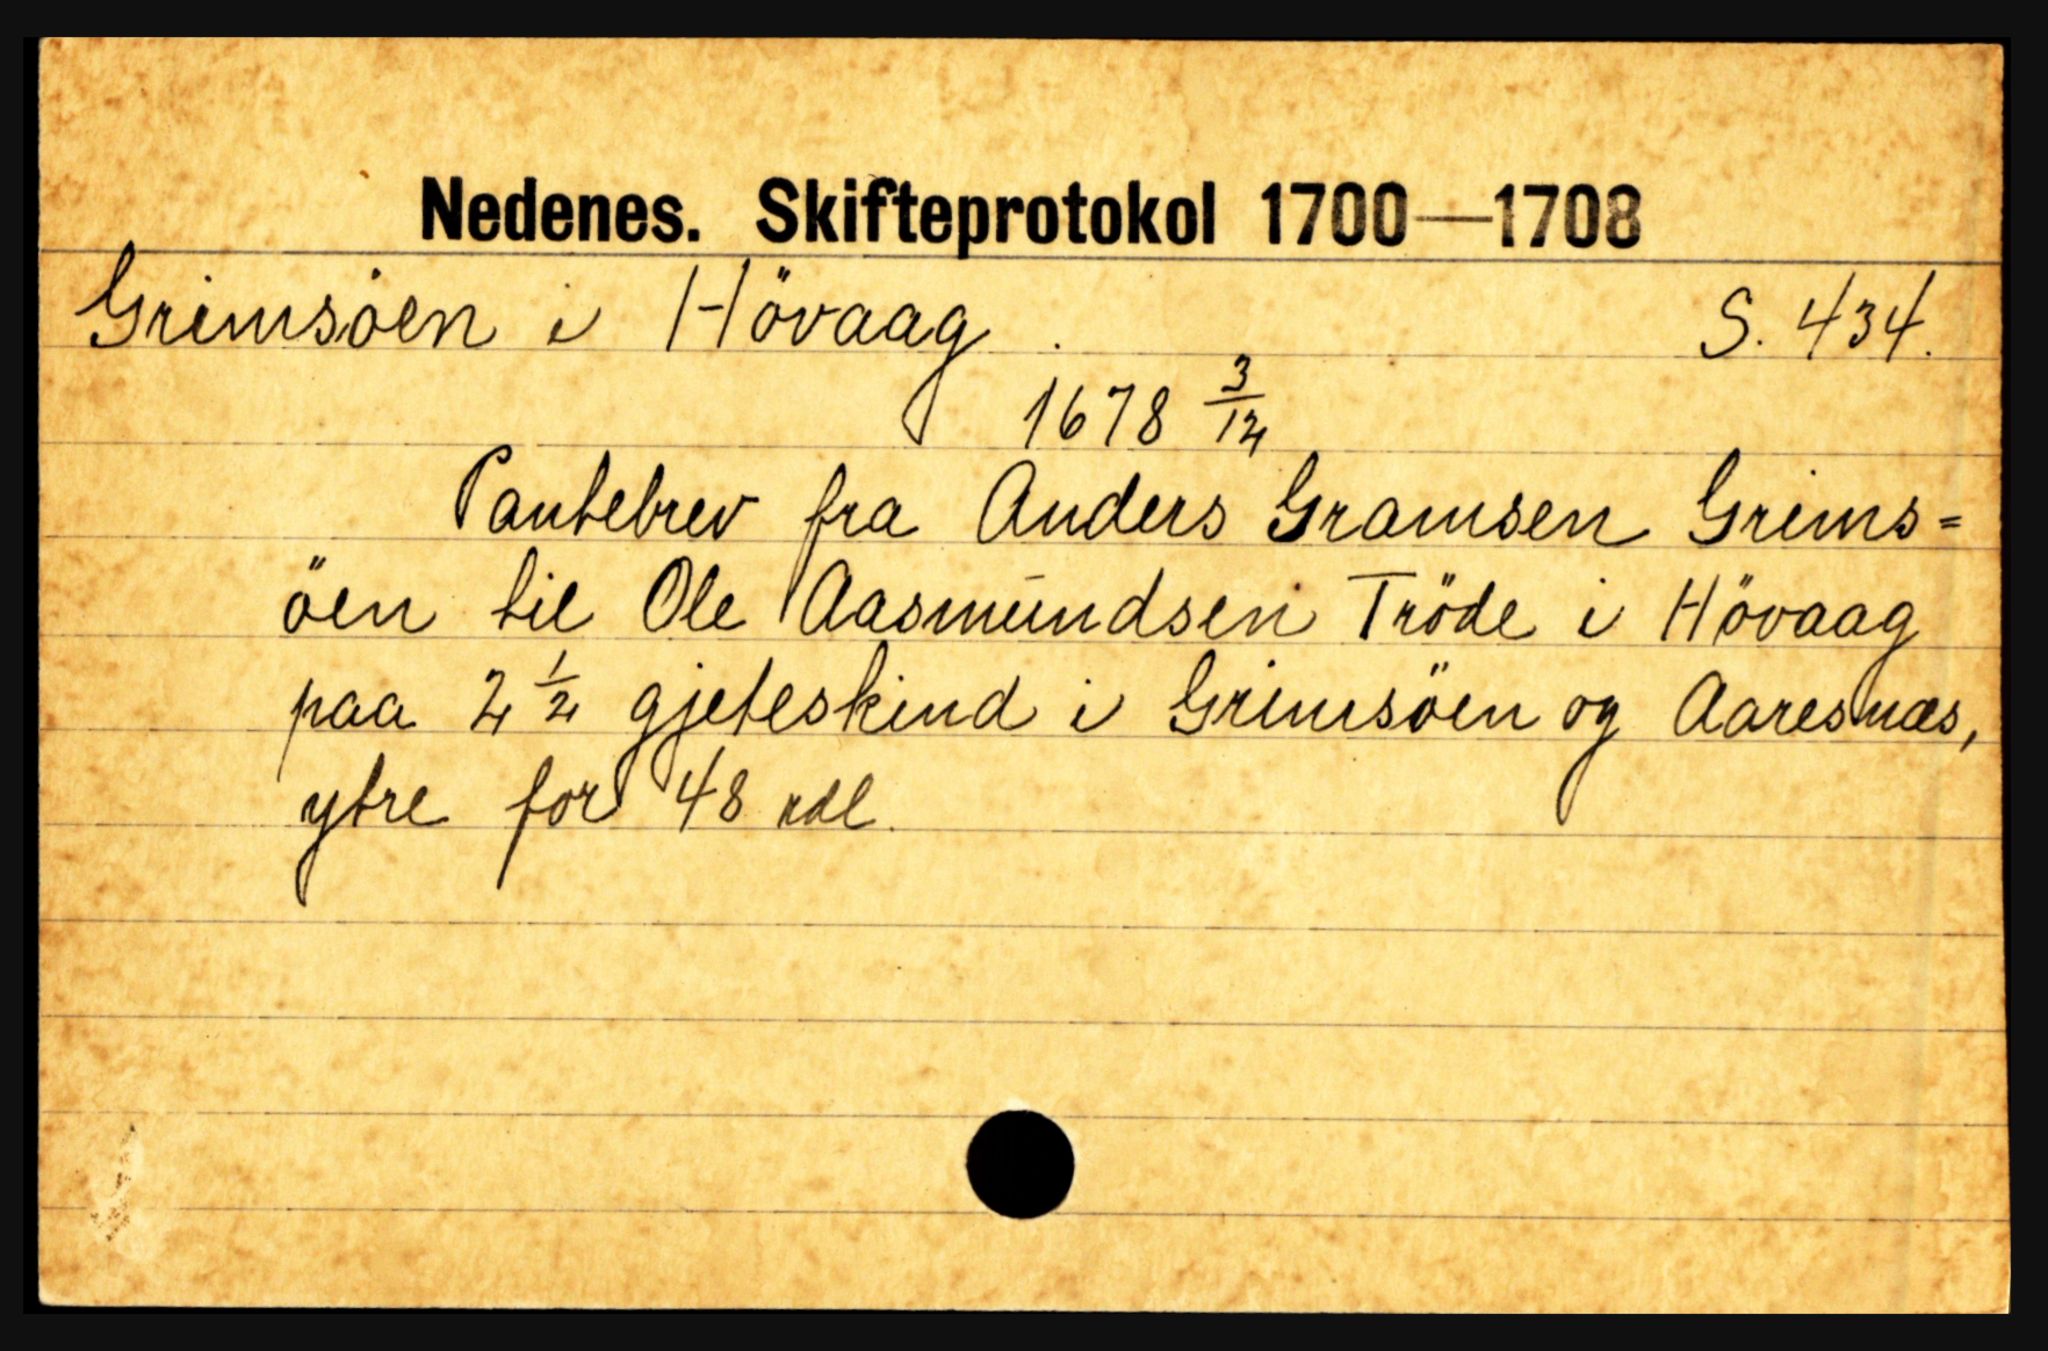 Nedenes. Skifteprotokol 1700—1708
Grimsöen i Hövaag. S. 434.
1678 3/12
Pantebrev fra Anders Gramsen Grims=
öen til Ole Aasmundsen Tröde i Hövaag
paa 2 1/2 gjeteskind i Grimsöen og Aaresnæs,
ytre for 48 rdl.